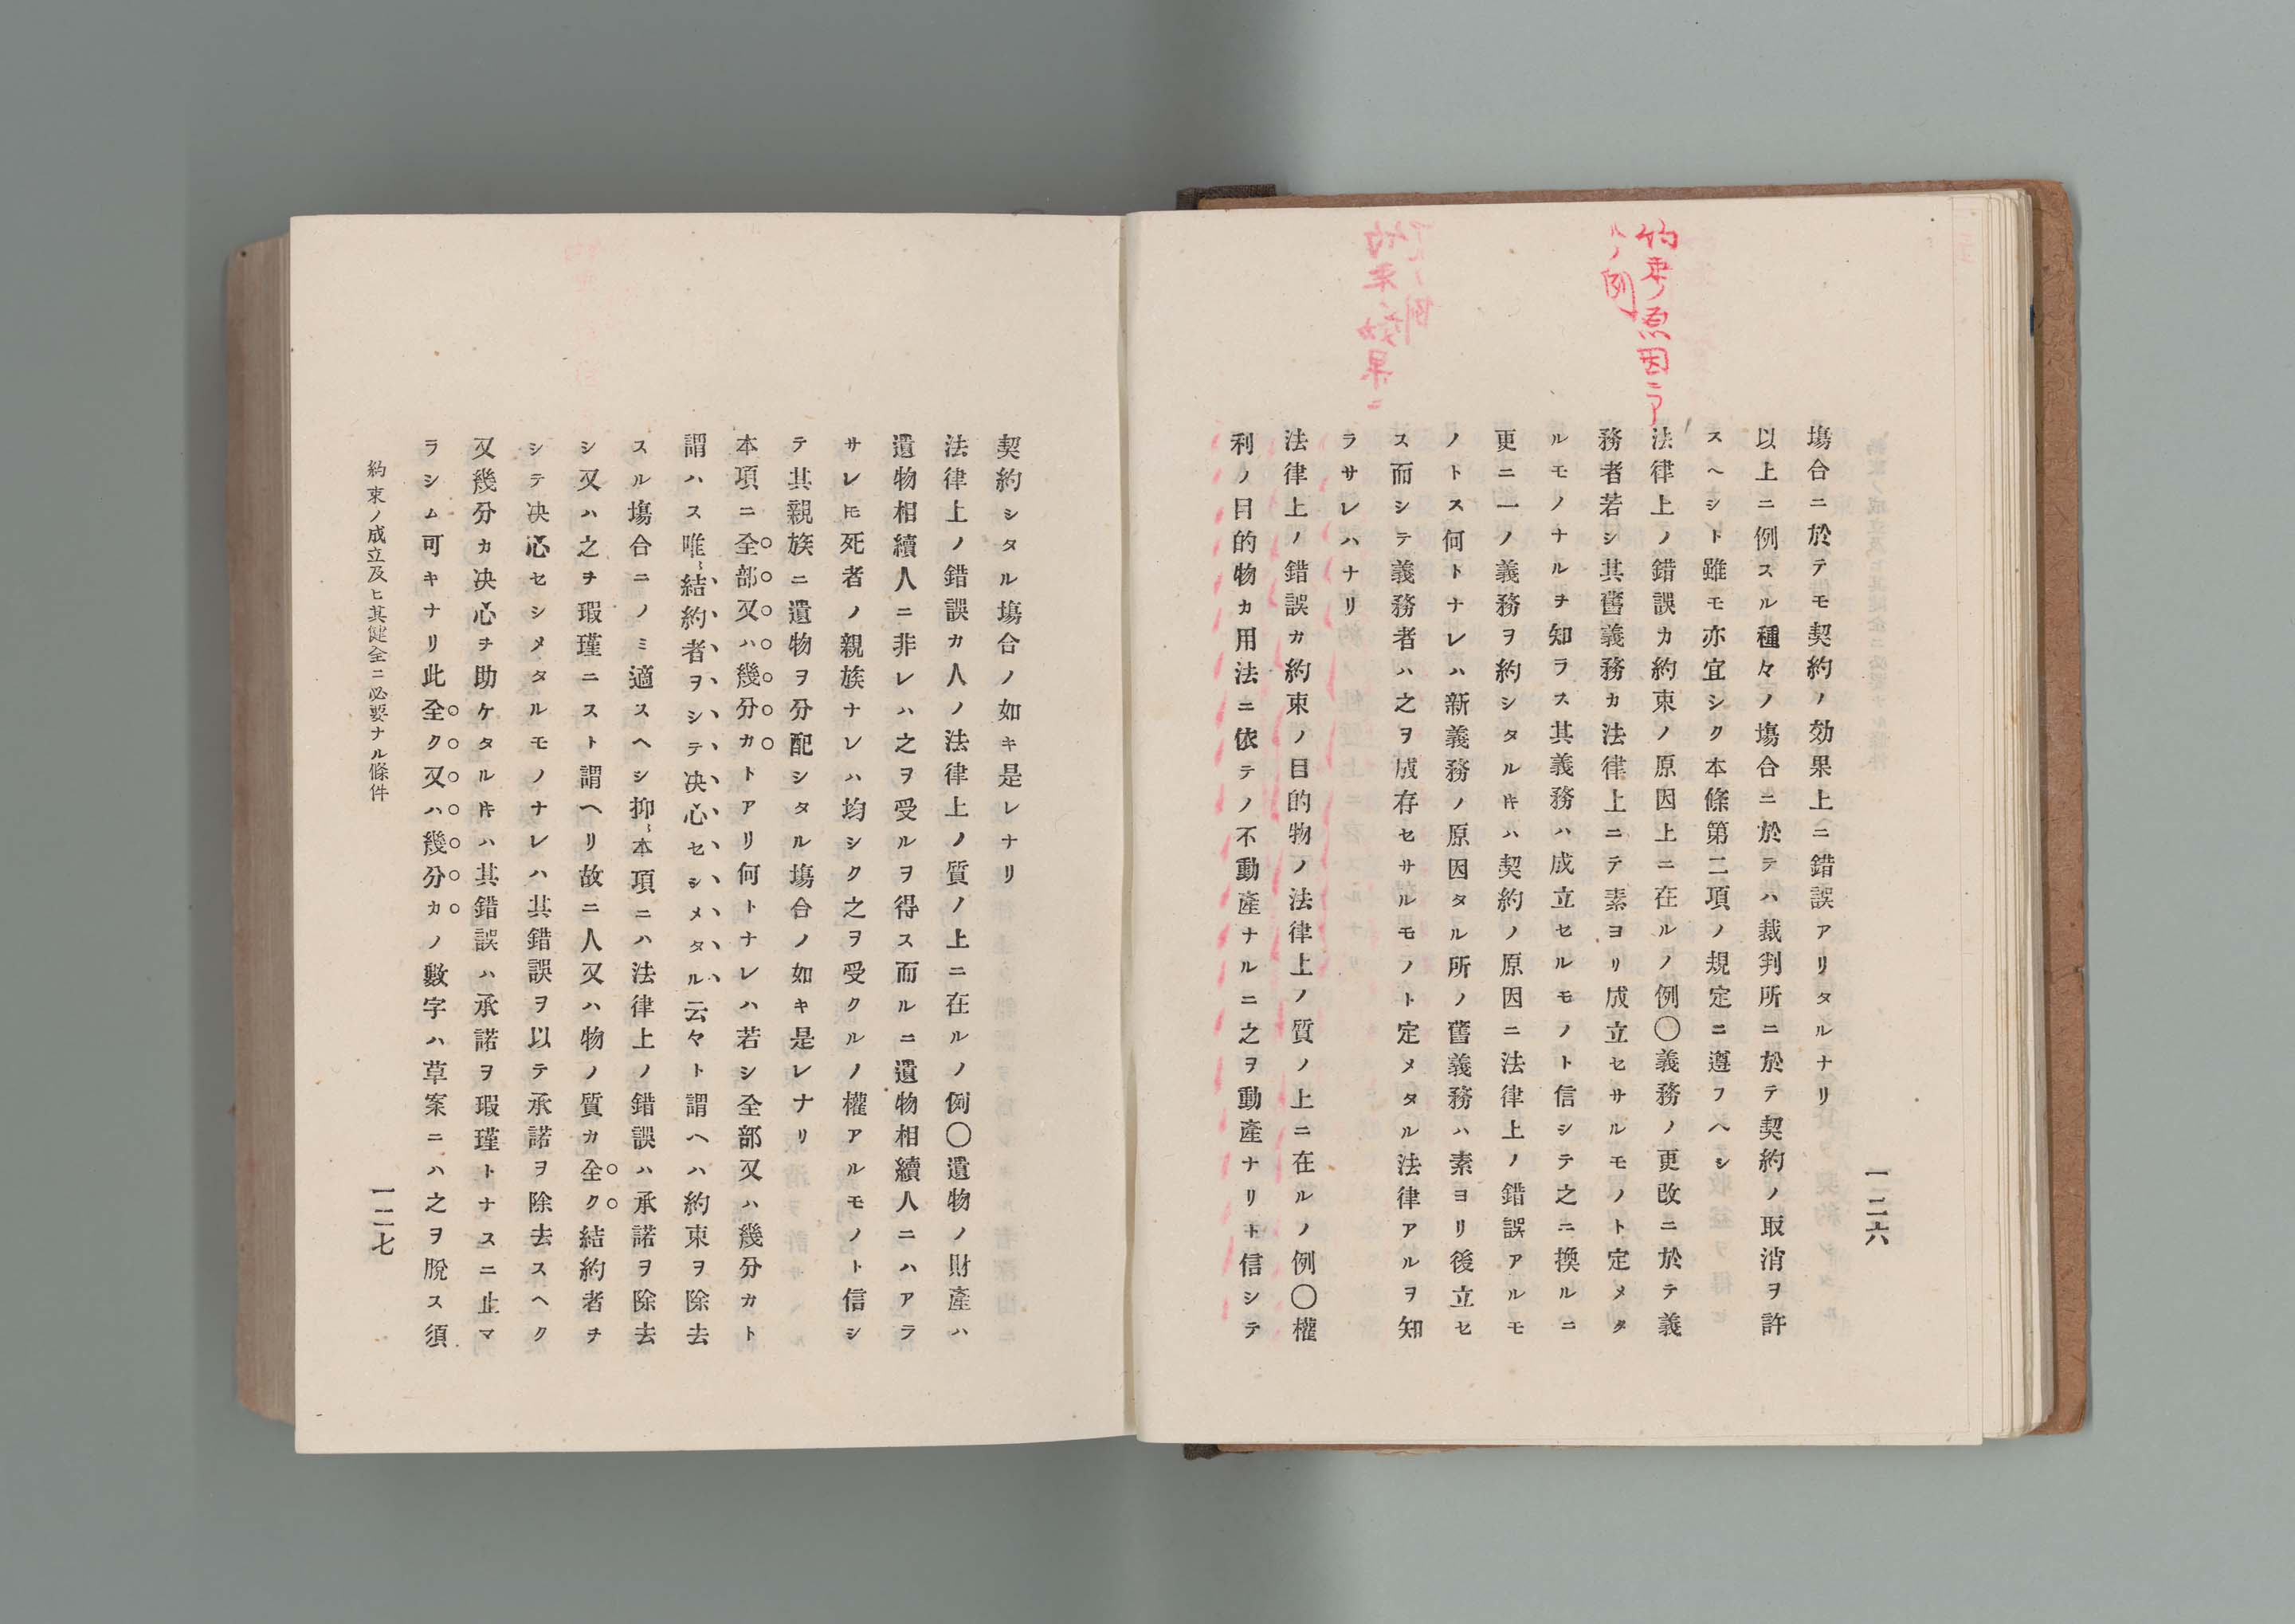 約束原因ニア
ルノ例
一二六
塲合ニ於テモ契約ノ効果上ニ錯誤アリタルナリ
以上ニ例スル種々ノ塲合ニ於テハ裁判所ニ於テ契約ノ取消ヲ許
スヘシト雖モ亦宜シク本條第二項ノ規定ニ遵フヘシ
法律上ノ錯誤カ約束ノ原因上ニ在ルノ例〇義務ノ更改ニ於テ義
務者若シ其舊義務カ法律上ニテ素ヨリ成立セサルモノト定メタ
ルモノナルヲ知ラス其義務ハ成立セルモノト信シテ之ニ換ルニ
更ニ一ノ義務ヲ約シタルトキハ契約ノ原因ニ法律上ノ錯誤アルモ
ノトス何トナレハ新義務ノ原因タル所ノ舊義務ハ素ヨリ後立セ
ス而シテ義務者ハ之ヲ成存セサルモノト定メタル法律アルヲ知
ラサレハナリ
法律上ノ錯誤カ約束ノ目的物ノ法律上ノ質ノ上ニ在ルノ例〇權
利ノ目的物カ用法ニ依テノ不動産ナルニ之ヲ動產ナリト信シテ
契約シタル塲合ノ如キ是レナリ
法律上ノ錯誤カ人ノ法律上ノ質ノ上ニ在ルノ例〇遺物ノ財產ハ
遺物相續人ニ非レハ之ヲ受ルヲ得ス而ルニ遺物相續人ニハアラ
サレ𪜈死者ノ親族ナレハ均シク之ヲ受クルノ權アルモノト信シ
テ其親族ニ遺物ヲ分配シタル塲合ノ如キ是レナリ
本項ニ全部又ハ幾分カトアリ何トナレハ若シ全部又ハ幾分カト
謂ハス唯結約者ヲシテ决心セシメタル云々ト謂ヘハ約束ヲ除去
スル塲合ニノミ適スヘシ抑本項ニハ法律上ノ錯誤ハ承諾ヲ除去
シ又ハ之ヲ瑕瑾ニスト謂ヘリ故ニ人又ハ物ノ質カ全ク結約者ヲ
シテ决心セシメタルモノナレハ其錯誤ヲ以テ承諾ヲ除去スヘク
又幾分カ决心ヲ助ケタルトキハ其錯誤ハ承諾ヲ瑕瑾トナスニ止マ
ラシム可キナリ此全ク又ハ幾分カノ數字ハ草案ニハ之ヲ脫ス須
約束ノ成立及ヒ其健全ニ必要ナル條件
一二七